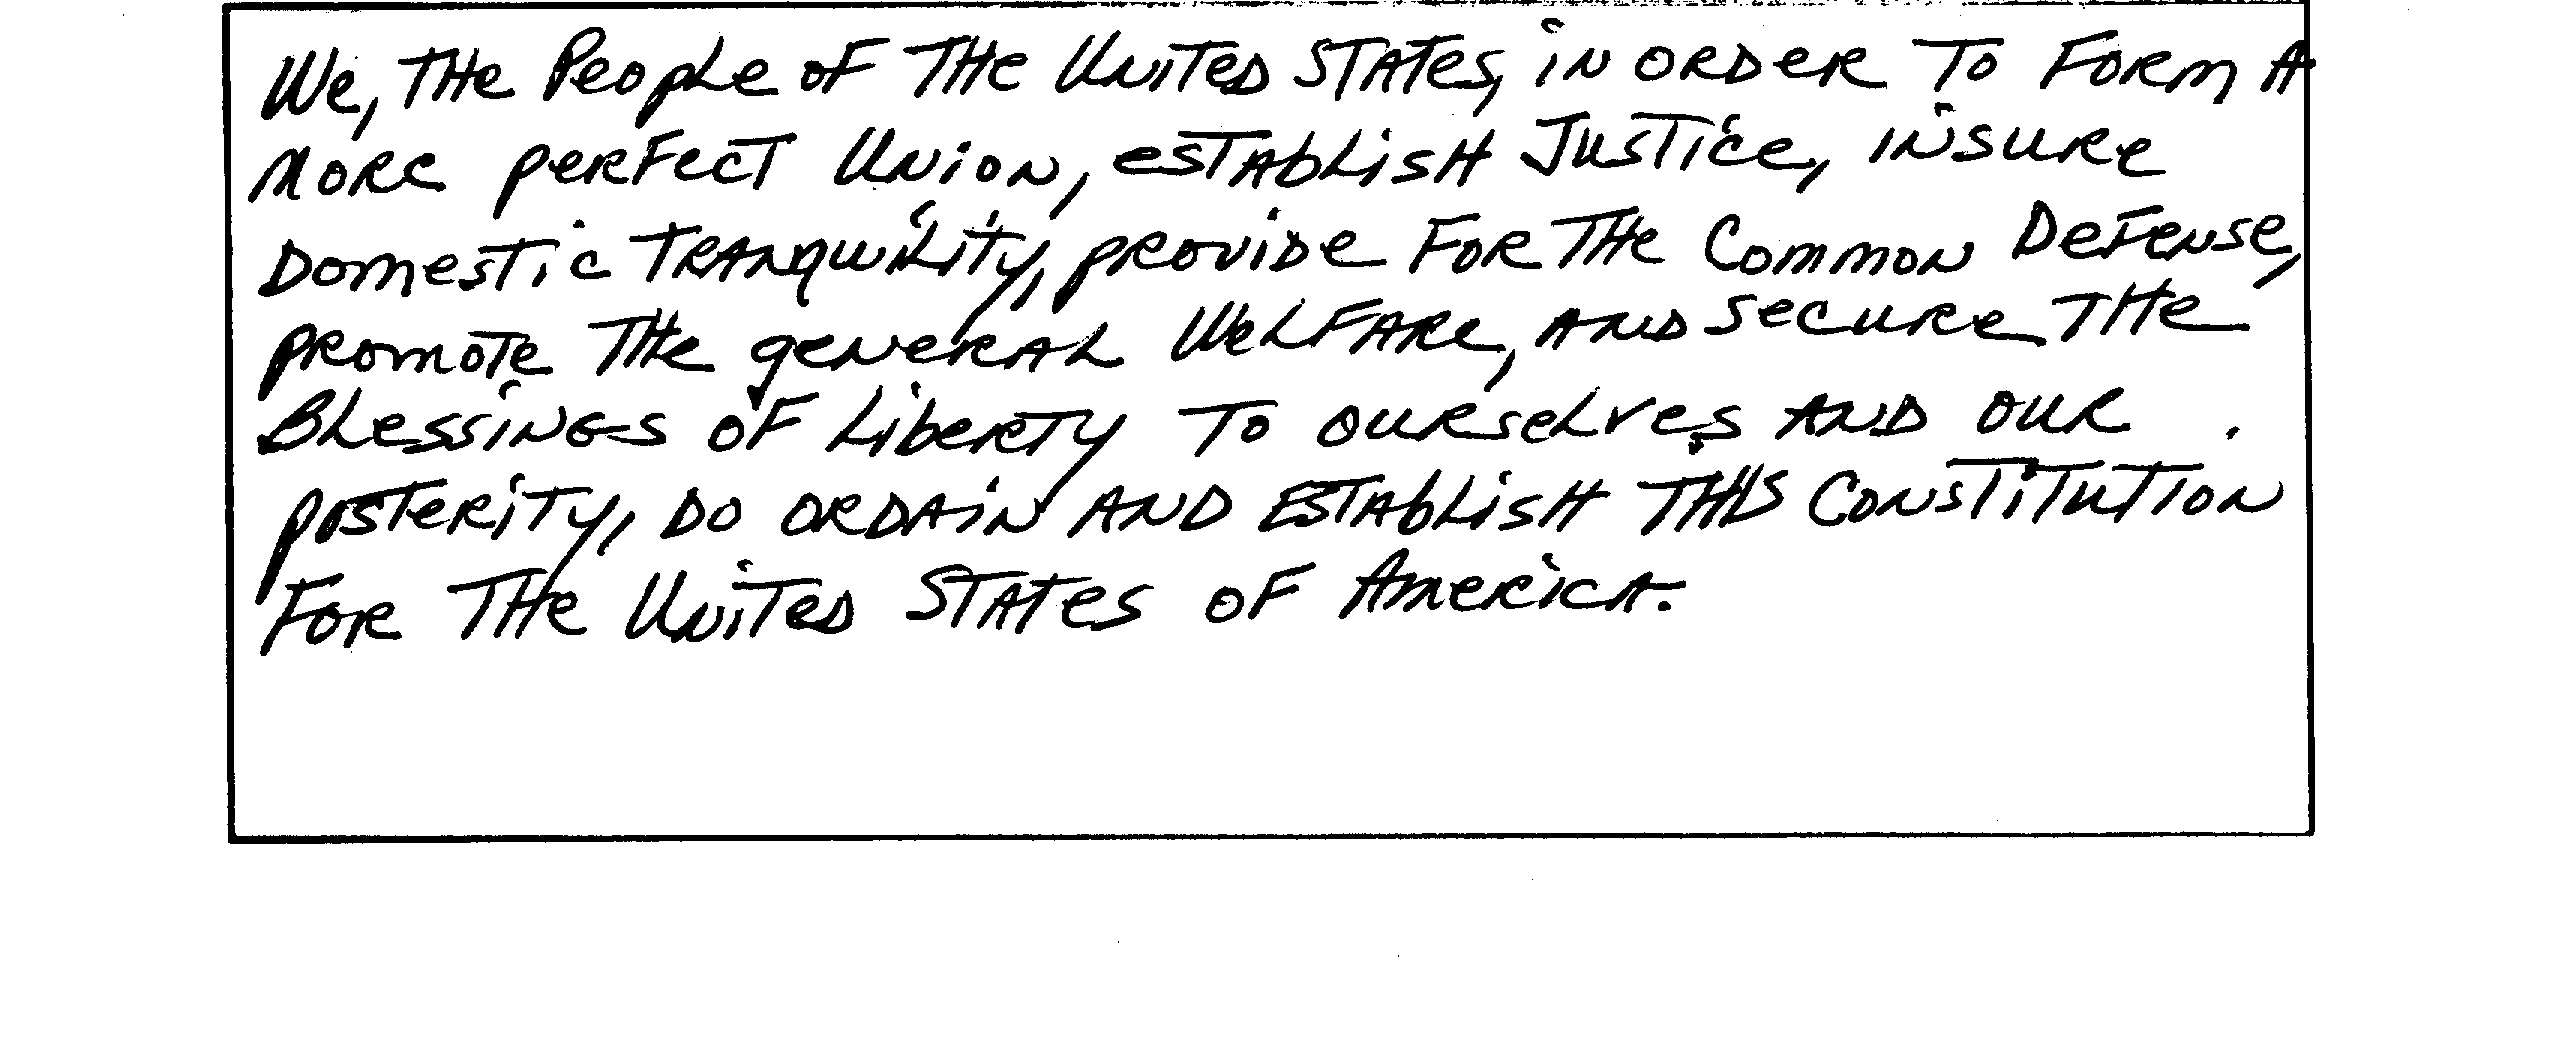 We, THe PeopLe oF THe UniTeD STATes, iN ORDeR To FORm A
MORe peRFecT UNioN, esTAbLisH JusTice, iNSURe
DomesTic TRANquiLiTy, pRoviDe FoR THe Common DeFeNse,
pRomoTe THe geNeRAL WeLFARe, AND secuRe THe
BLessiNGs oF LibeRTy To ouRseLves AND OUR
posTeRiTy, DO ORDAiN AND ESTAbLisH THis ConsTiTuTioN
FoR THe UniTeD STATes oF AmeRicA.